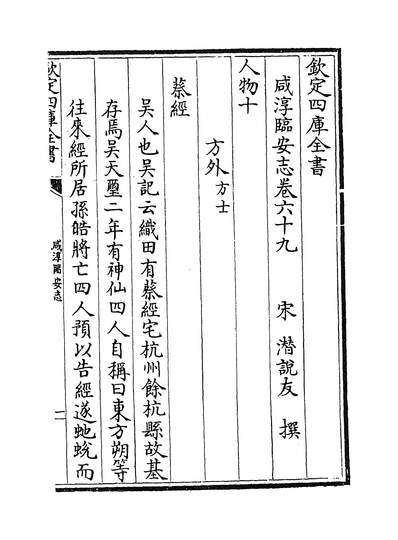 欽定四庫全書
咸淳臨安志卷六十九　宋　潛說友　撰
人物十
方外方士
蔡經
吳人也吳記云織田有蔡經宅杭州餘杭縣故基
存焉吳天璽二年有神仙四人自稱曰東方朔等
往來經所居孫皓將亡四人預以告經遂虵蛻而
欽定四庫全書
咸淳臨安志
一